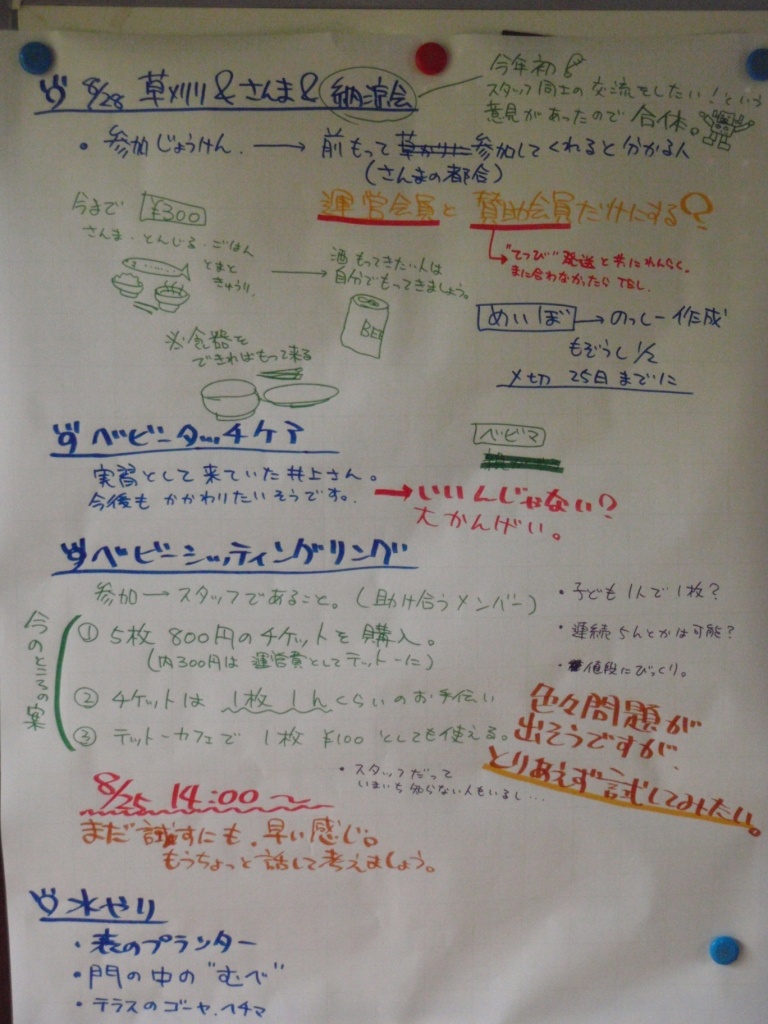 8/28 草刈り&さんま&納涼会
今年初
スタッフ同士の交流をしたい!という
意見があったので合体。
・参加じょうけん. → 前もって草かりに参加してくれると分かる人
(さんまの都合)
運営会員と賛助会員だけにする?
"てつび"発送と共にれんらく。
まに合わなかったらTEL.
今まで ¥300
さんま・とんじる・ごはん
とまと
きゅうり.
酒もってきたい人は
自分でもってきましょう。
BEE
※食器を
できればもって来る
めいぼ→のっしー作成
もぞうし1/2
〆切 25日までに
ベビータッチケア
ベビマ
実習として来ていた井上さん。
今後もかかわりたいそうです。
→いいんじゃない?
大かんげい。
ベビーシッティングリング
参加→スタッフであること。(助け合うメンバー)
今のところの案
① 5枚 800円のチケットを購入。
(内300円は運営費としてテットーに)
② チケットは 1枚 1hくらいのお手伝い
③ テットーカフェで 1枚 ¥100 としても使える。
・子ども1人で1枚?
・連続5hとかは可能?
・値段にびっくり。
・スタッフだって
いまいち知らない人もいるし...
色々問題が
出そうですが、
とりあえず試してみたい。
8/25 14:00〜
まだ試すにも、早い感じ。
もうちょっと話して考えましょう。
水やり
・表のプランター
・門の中の"むべ"
・テラスのゴーヤ.ヘチマ